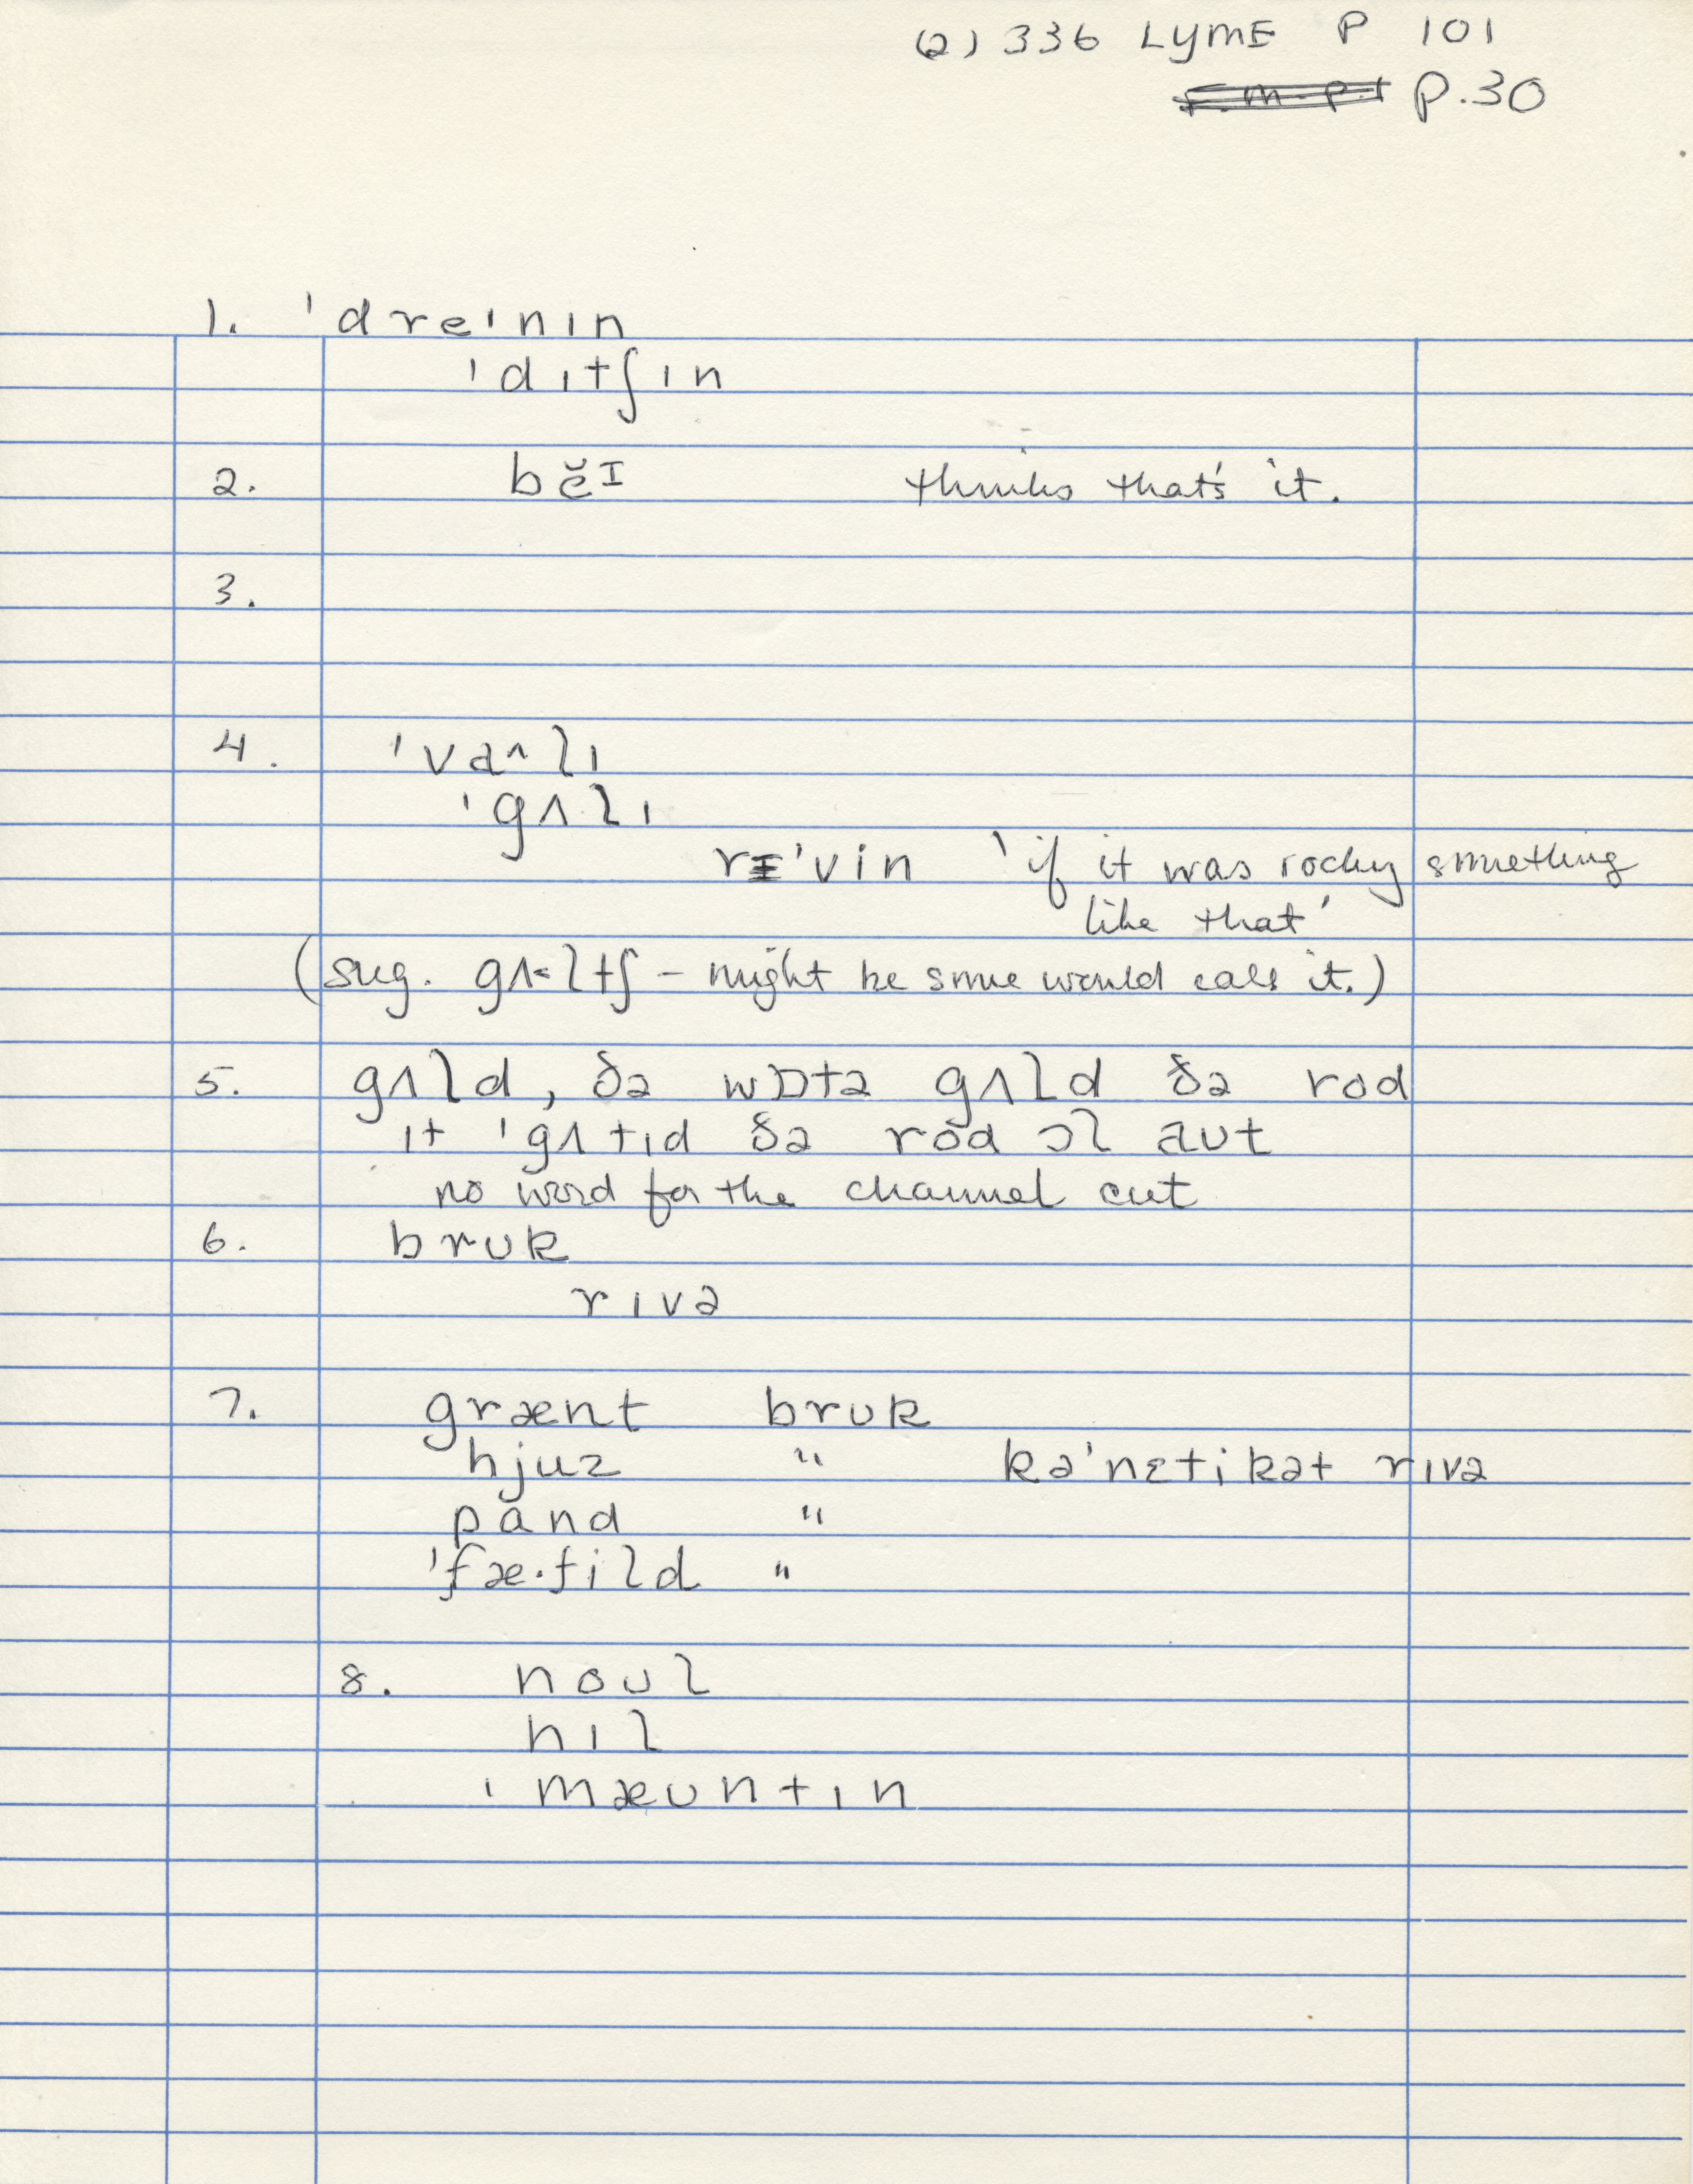 (2) 336 LYME P 101
P.30
1. 'dreɪnɪn
'dɪtʃɪn
2. bĕɪ thinks that's it.
3.
4. 'vaʌlɪ
'gʌlɪ
rɪ'vin 'if it was rocky something
like that'
(sug. gʌ<ltʃ – might be some would call it.)
5. gʌld, ðə wɒtə gʌld ðə rod
ɪt 'gʌtɪd ðə rod ɔl aʊt
no word for the channel cut
6. brʊk
rɪvə
7. grænt brʊk
hjuz " kə'nɛtikət rɪvə
pand "
'fæ·fild "
8. noʊl
hɪl
'mæʊntɪn